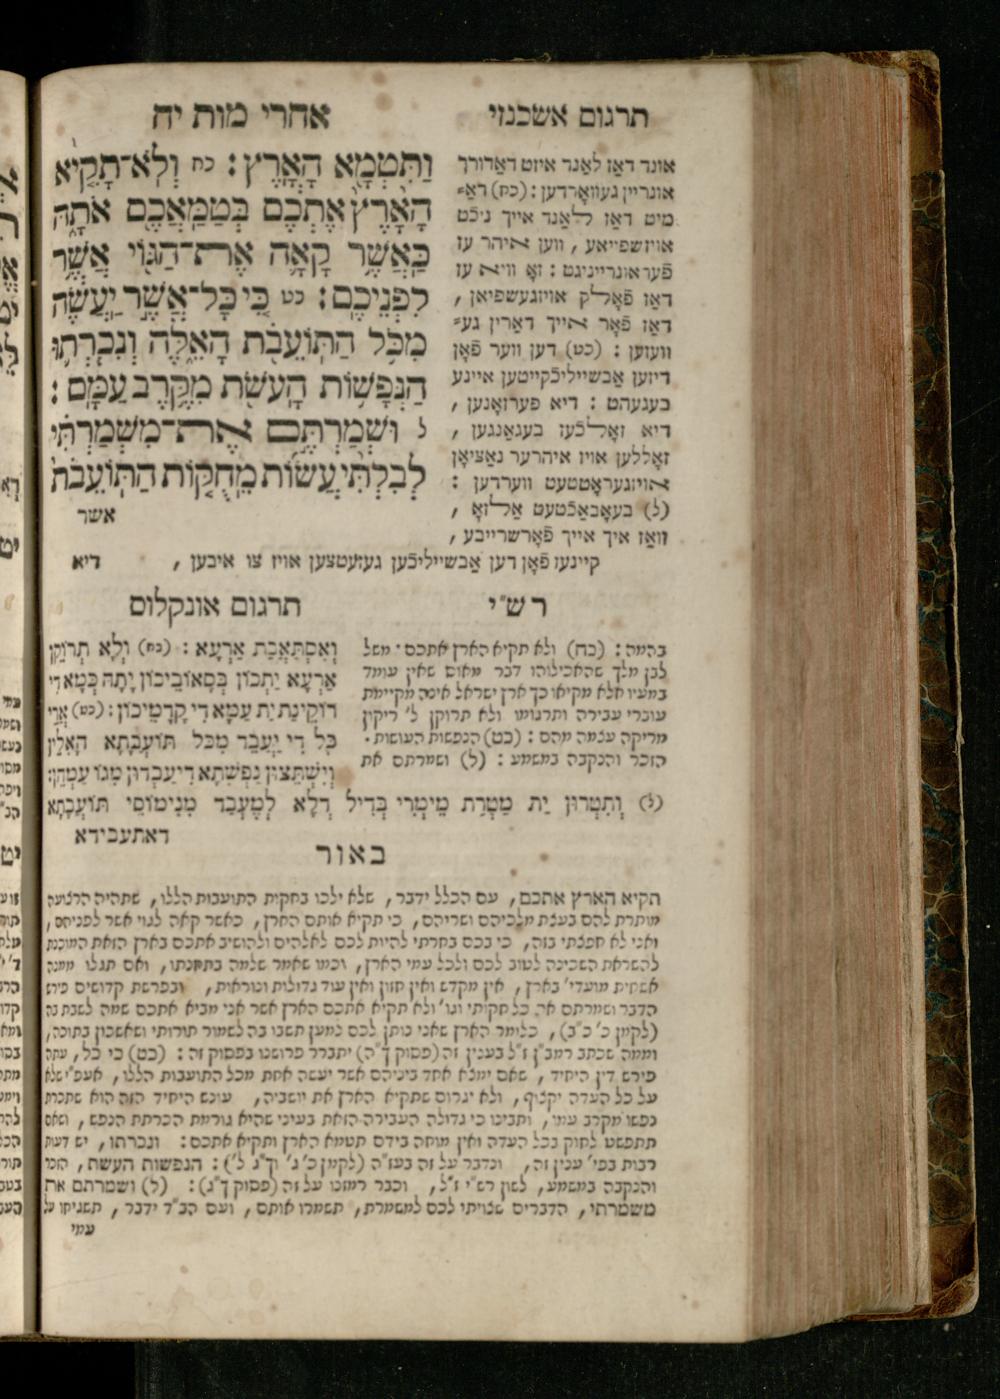 אחרי מות יח
וַתִּטְמָא הָאָרֶץ׃ כח וְלֹא־תָקִיא
הָאָרֶץ אֶתְכֶם בְּטַמַּאֲכֶם אֹתָהּ
כַּאֲשֶׁר קָאָה אֶת־הַגּוֹי אֲשֶׁר
לִפְנֵיכֶם׃ כט כִּי כָּל־אֲשֶׁר יַעֲשֶׂה
מִכֹּל הַתּוֹעֵבֹת הָאֵלֶּה וְנִכְרְתוּ
הַנְּפָשׁוֹת הָעֹשֹׂת מִקֶּרֶב עַמָּם׃
ל וּשְׁמַרְתֶּם אֶת־מִשְׁמַרְתִּי
לְבִלְתִּי עֲשׂוֹת מֵחֻקּוֹת הַתּוֹעֵבֹת
אשר
תרגום אשכנזי
אונד דאַז לאַנד איזט דאַדורך
אונריין געוואָרדען : (כח) דאַ־
מיט דאַז לאַנד אייך ניכֿט
אויזשפייאע , ווען איהר עז
פֿעראונרייניגט : זאָ וויא עז
דאַז פֿאָלק אויזגעשפיאן ,
דאַז פֿאָר אייך דאַרין גע־
וועזען : (כט) דען ווער פֿאָן
דיזען אַבשייליכֿקייטען איינע
בעגעהט : דיא פערזאָנען ,
דיא זאָלכֿעז בעגאַנגען ,
זאָללען אויז איהרער נאַציאָן
אויזגעראָטטעט ווערדען :
(ל) בעאָבאַכֿטעט אַלזאָ ,
וואַז איך אייך פֿאָרשרייבע ,
קיינעז פֿאָן דען אַבשייליכֿען געזעטצען אויז צו איבען , דיא
רש״י
בהמה : (כח) ולא תקיא הארץ אתכם · משל
לבן מלך שהאכילוהו דבר מאוס שאין עומד
במעיו אלא מקיאו כך ארץ ישראל אינה מקיימת
עוברי עבירה ותרגומו ולא תרוקן ל׳ ריקון
מריקה עצמה מהם : (כט) הנפשות העושות ·
הזכר והנקבה במשמע : (ל) ושמרתם את
תרגום אונקלוס
וְאִסְתָּאֲבַת אַרְעָא : (כח) וְלָא תְרוֹקֵן
אַרְעָא יַתְכוֹן בְּסָאוֹבֵיכוֹן יָתַהּ כְּמָא דִי
רוֹקֵינַת יַת עַמָּא דִי קֳדָמֵיכוֹן : (כט) אֲרֵי
כָּל דִּי יַעֲבֵד מִכֹּל תּוֹעֲבָתָא הָאִלֵּין
וְיִשְׁתֵּצוּן נַפְשָׁתָא דִיעַבְדוּן מִגּוֹ עַמְּהֵן׃
(ל) וְתִטְּרוּן יַת מַטְּרַת מֵימְרִי בְּדִיל דְּלָא לְמֶעְבַּד מִנִּימוֹסֵי תּוֹעֲבָתָא
דאתעבידא
באור
תקיא הארץ אתכם, עם הכלל ידבר, שלא ילכו בחקות התועבות הללו, שתהיה הרצועה
מותרת להם בעצת מלכיהם ושריהם, כי תקיא אותם הארץ, כאשר קאה לגוי אשר לפניהם,
ואני לא חפצתי בזה, כי בכם בחרתי להיות לכם לאלהים ולהושיב אתכם בארץ הזאת המוכנת
להשראת השכינה לטוב לכם ולכל עמי הארץ, וכמו שאמר שלמה בתחנתו, ואם תגלו ממנה
אשבית מועדי׳ בארץ, אין מקדש ואין חזון ואין עוד גדולות ונוראות, ובפרשת קדושים פירש
הדבר ושמרתם את כל חקותי וגו׳ ולא תקיא אתכם הארץ אשר אני מביא אתכם שמה לשבת בה
(לקמן כ׳ כ״ב), כלומר הארץ שאני נותן לכם למען תשבו בה לשמור תורותי ושאשכון בתוכה,
וממה שכתב רמב״ן ז״ל בענין זה (פסוק ך״ה) יתברר פרושנו בפסוק זה : (כט) כי כל, עתה
פירש דין היחיד, שאם ימצא אחד ביניהם אשר יעשה אחת מכל התועבות הללו, אעפ״י שלא
על כל העדה יקצוף, ולא יגרום שתקיא הארץ את יושביה, עונש היחיד הזה הוא שתכרת
נפשו מקרב עמו, ותבינו כי גדולה העבירה הזאת בעיני שהיא גורמת הכרתת הנפש, ושאם
תתפשט לחוק בכל העדה ואין מוחה בידם תטמא הארץ ותקיא אתכם : ונכרתו, יש דעות
רבות בפי׳ ענין זה, ונדבר על זה בעז״ה (לקמן כ׳ ג׳ וך״ג ל׳) : הנפשות העשת, הזכר
והנקבה במשמע, לשון רש״י ז״ל, וכבר רמזנו על זה (פסוק ך״ג) : (ל) ושמרתם את
משמרתי, הדברים שצויתי לכם למשמרת, תשמרו אותם, ועם הב״ד ידבר, תשגיחו על
עמי